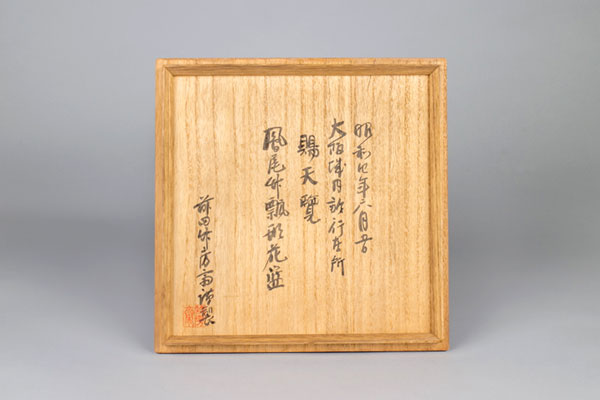 昭和四年六月
大阪城内於行在所
賜天覽
鳳尾竹瓢形花籃
前田竹房斎謹製